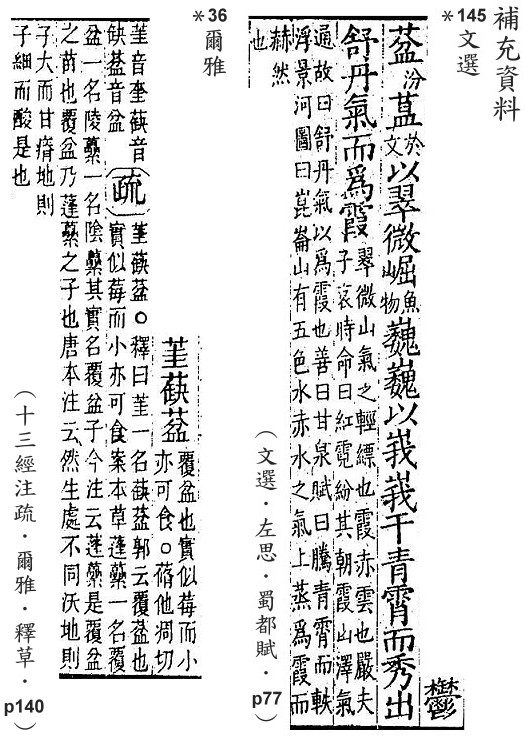 補充資料
*145
文選
鬱
葐汾蒀於文以翠微崛魚物巍巍以峩峩干青霄而秀出
舒丹氣而爲霞
翠微山氣之輕縹也霞赤雲也嚴夫
子哀時命曰紅霓紛其朝霞山澤氣
通故曰舒丹氣以爲霞也善曰甘泉賦曰騰青霄而軼
浮景河圖曰崑崙山有五色水赤水之氣上蒸爲霞而
赫然
也
(文選．左思．蜀都賦．p77)
*36
爾雅
茥蒛葐
覆盆也實似莓而小
亦可食○蓨他凋切
茥音奎蒛音
缺葐音盆
疏
茥蒛葐○釋曰茥一名蒛葐郭云覆盆也
實似莓而小亦可食案本草蓬虆一名覆
盆一名陵虆一名陰虆其實名覆盆子今注云蓬虆是覆盆
之苗也覆盆乃蓬虆之子也唐本注云然生處不同沃地則
子大而甘瘠地則
子細而酸是也
(十三經注疏．爾雅．釋草．p140)